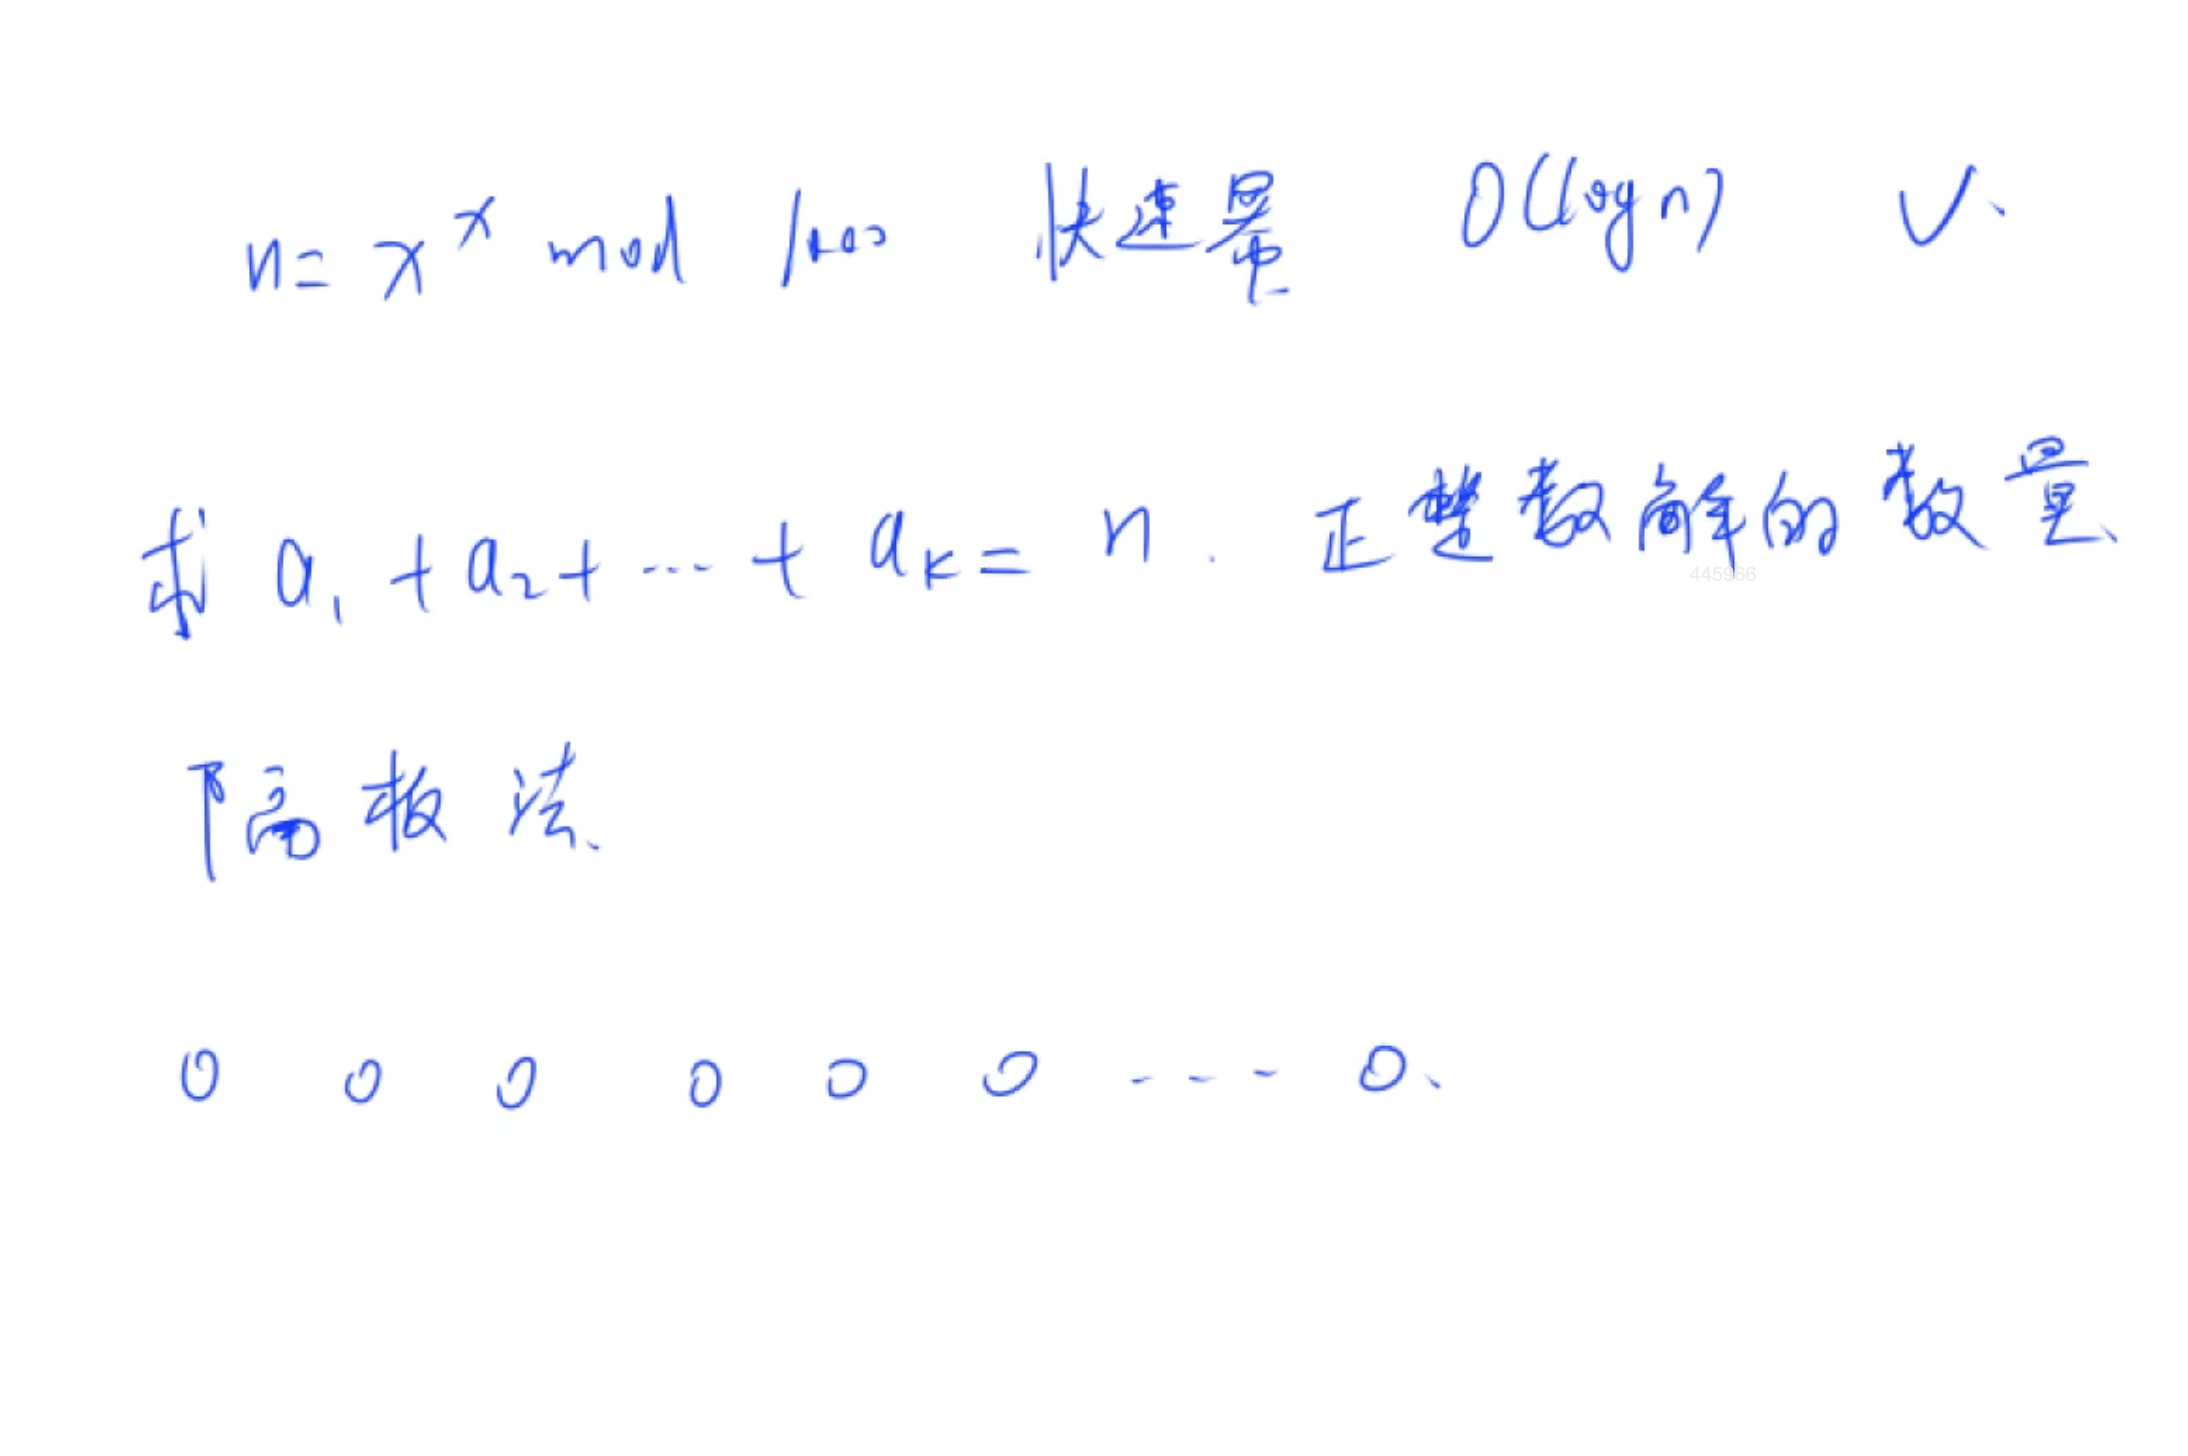 n = x^x mod 1000 快速幂 O(log n) √.
求 a₁ + a₂ + ... + aₖ = n . 正整数解的数量.
445966
隔板法.
0 0 0 0 0 0 --- 0.